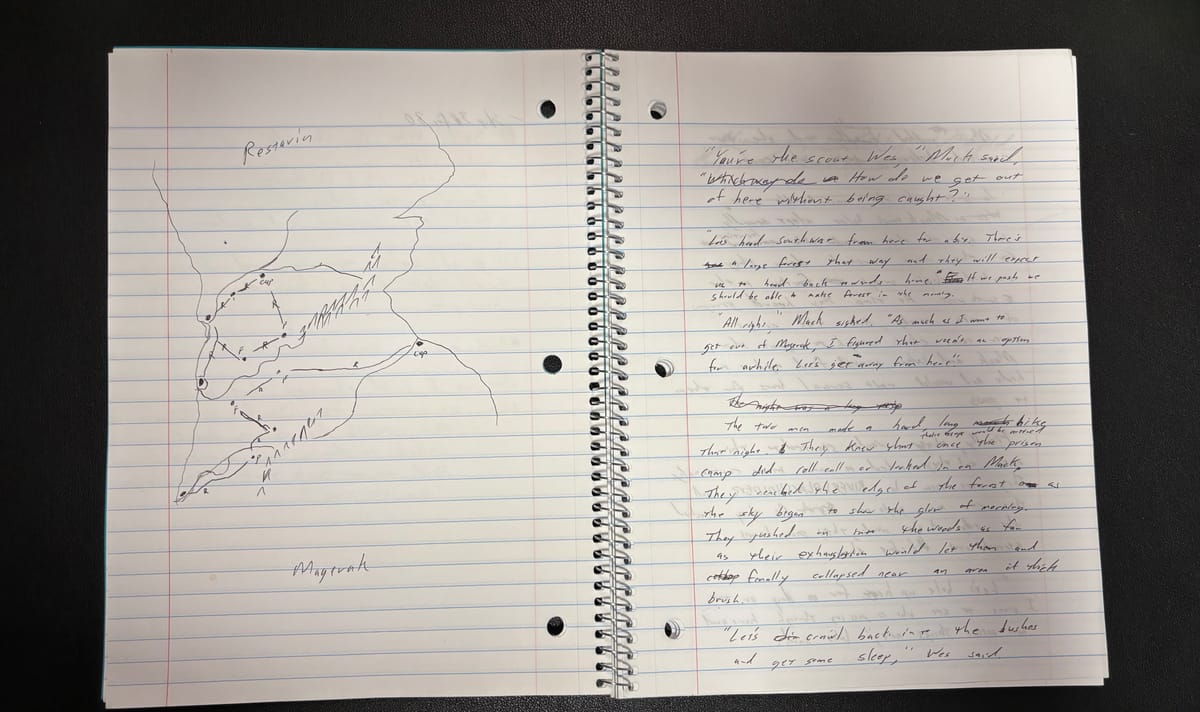 Restavin
Cap
R
R
R
R
F
R
F
Cap
R
R
F
F
R
F
P
R
Magerak
"You're the scout Wes," Mack said,
"Which way do How do we get out
of here without being caught?"
"Let's head southwar from here for a bit. There's
a large forest that way and they will expect
us to head back towards home." If we push we
should be able to make forest in the morning.
"All right," Mack sighed. "As much as I want to
get out of Magerak I figured that wasn't an option
for awhile. Let's get away from here."
The night was a long
The two men made a hard, long hike
that night. They knew that once the prison
their escape would be noticed
camp did roll call or looked in on Mack.
They reached the edge of the forest as
the sky began to show the glow of morning.
They pushed on into the woods as far
as their exhaustion would let them and
finally collapsed near an area of thick
brush.
"Let's crawl back into the bushes
and get some sleep," Wes said.